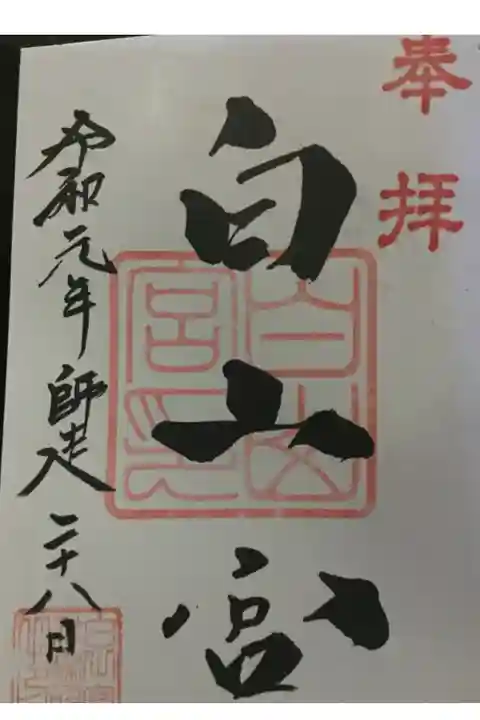 奉拝
白山宮
白山宮印
令和元年師走二十八日